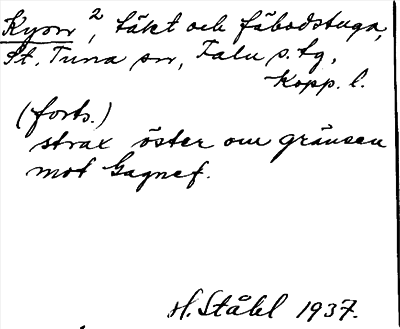 Kyorr 2, täkt och fäbodstuga,
St. Tuna sn, Falu s. tg,
Kopp. l.
(forts.)
strax öster om gränsen
mot Gagnef.
H. Ståhl 1937.